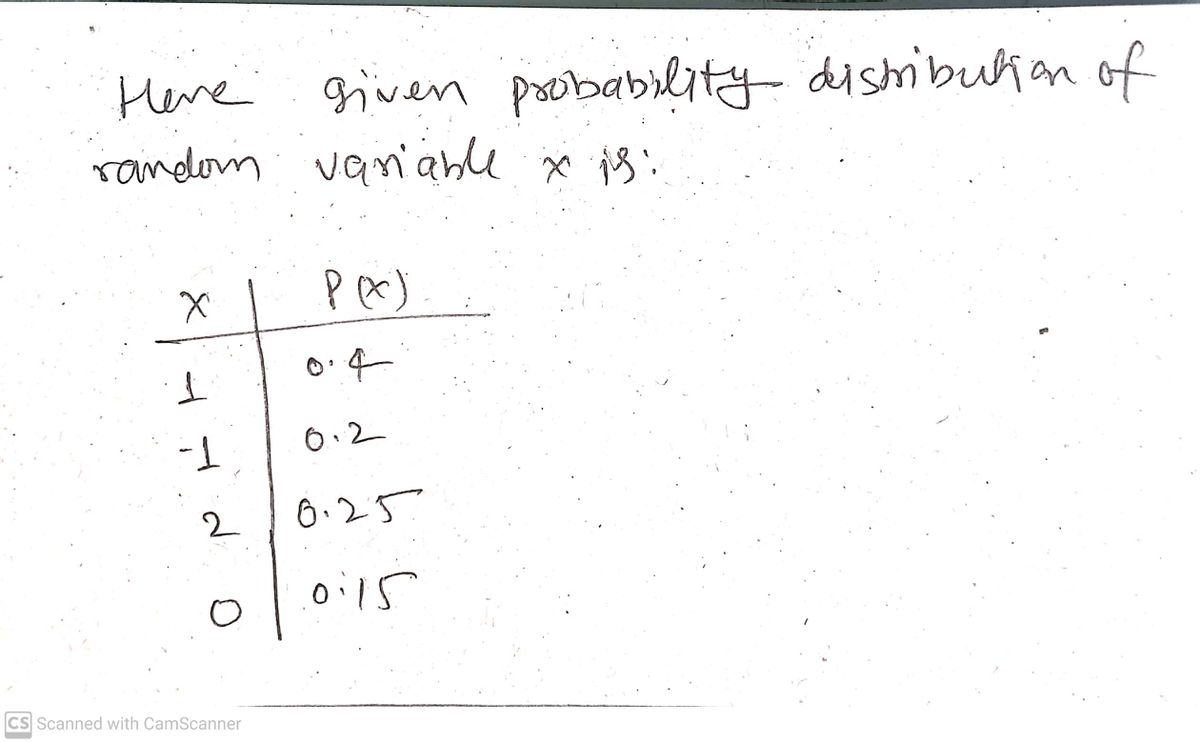 Here given probability distribution of
random variable x is:
x P(x)
1 0.4
-1 0.2
2 0.25
0 0.15
CS Scanned with CamScanner